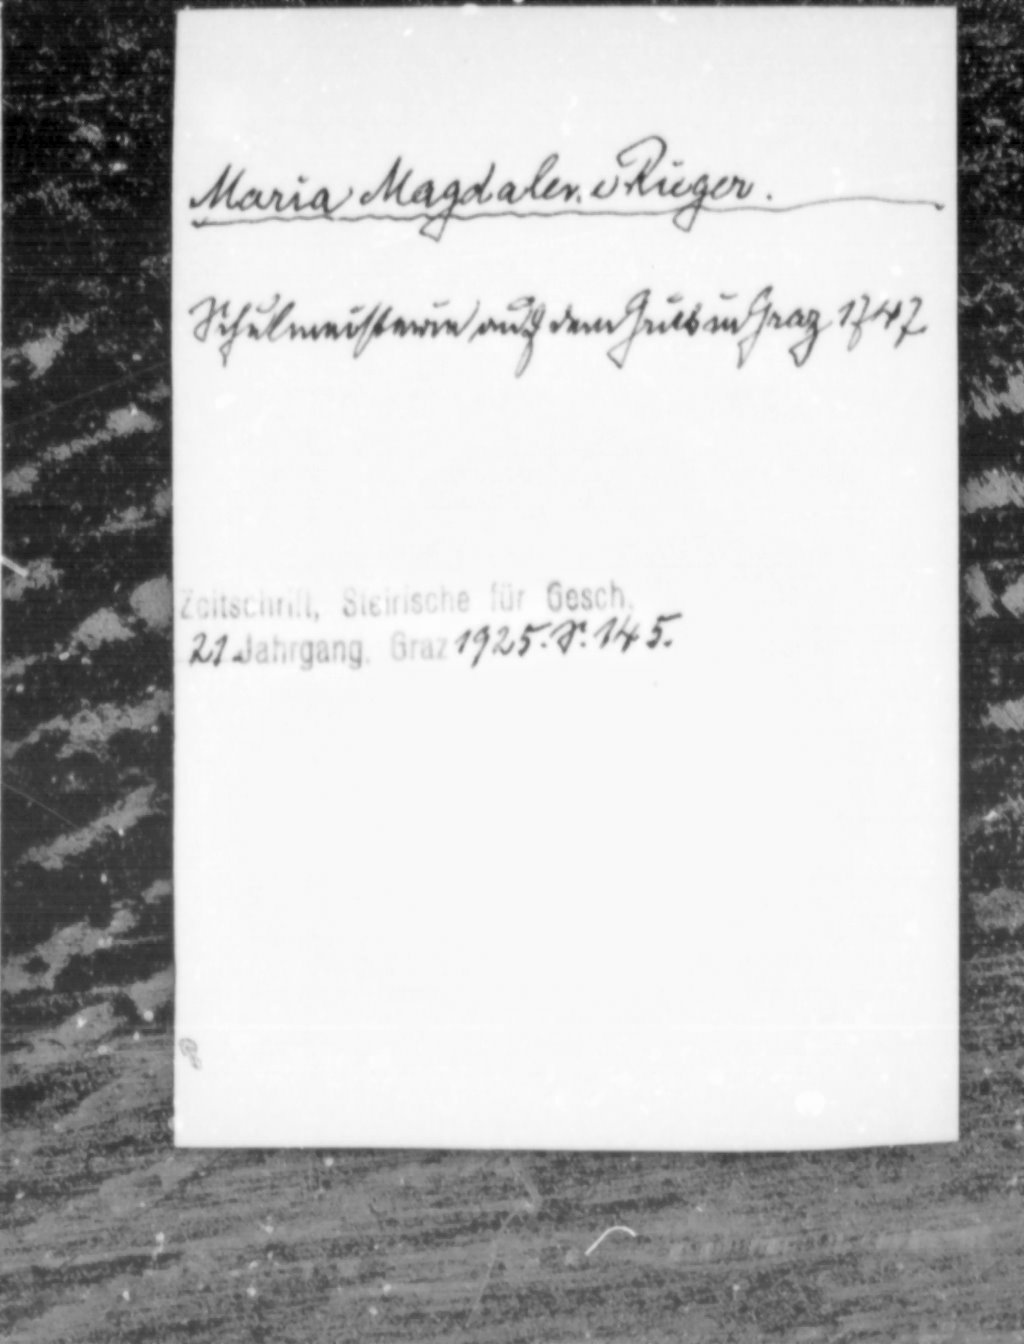 Maria Magdalen. v. Rüeger.
Schulmeisterin auf dem Gries in Graz 1747
Zeitschrift, Steirische für Gesch.
21. Jahrgang. Graz 1925. S. 145.